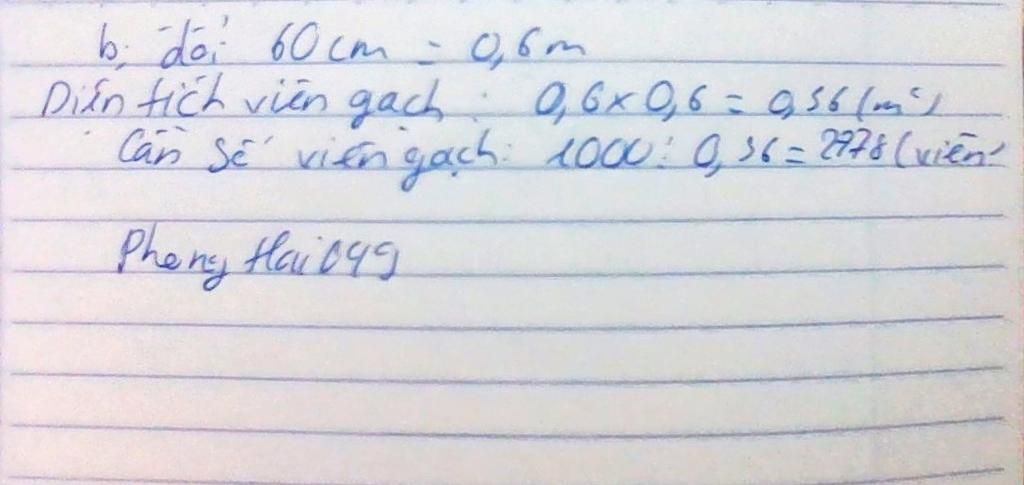 b, đổi 60 cm = 0,6 m
Diện tích viên gạch : 0,6 x 0,6 = 0,36 (m²)
Cần số viên gạch: 1000 : 0,36 = 2778 (viên)
Phong Hai 049